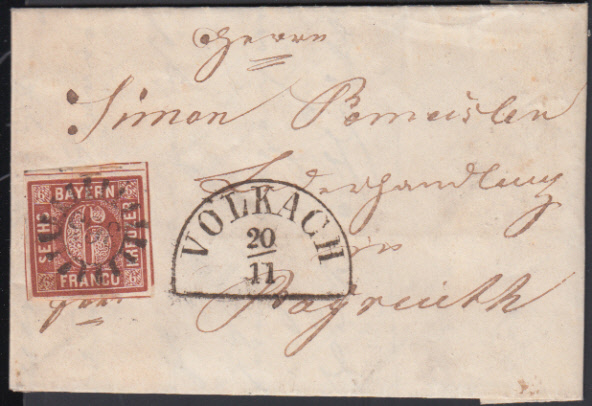 Herrn
Simon Pömeislen
Lederhandlung
in
Bayreuth
BAYERN
SECHS
6
KREUZER
FRANCO
VOLKACH
20
11